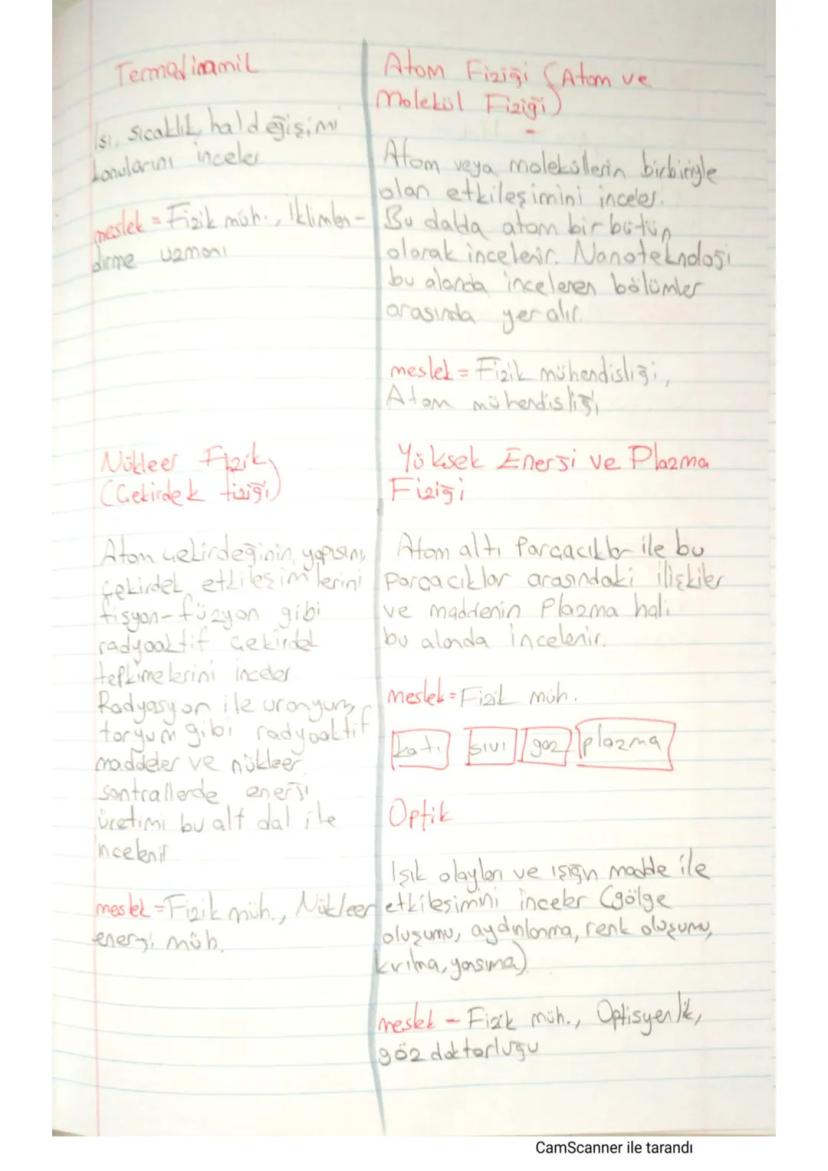 Termodinamik
Isı, sıcaklık, hal değişimi
konularını inceler
meslek = Fizik müh., İklimlen-
dirme uzmanı
Nükleer Fizik
(Çekirdek fiziği)
Atom çekirdeğinin yapısını,
çekirdek etkileşimlerini
fisyon-füzyon gibi
radyoaktif çekirdek
tepkimelerini inceler
Radyasyon ile uranyum,
toryum gibi radyoaktif
maddeler ve nükleer
santrallerde enerji
üretimi bu alt dal ile
incelenir
meslek = Fizik müh., Nükleer
enerji müh.
Atom Fiziği (Atom ve
Molekül Fiziği)
Atom veya moleküllerin birbiriyle
olan etkileşimini inceler.
Bu dalda atom bir bütün
olarak incelenir. Nanoteknoloji
bu alanda incelenen bölümler
arasında yer alır.
meslek = Fizik mühendisliği,
Atom mühendisliği
Yüksek Enerji ve Plazma
Fiziği
Atom altı Parçacıklar ile bu
parçacıklar arasındaki ilişkiler
ve maddenin Plazma hali
bu alanda incelenir.
meslek = Fizik müh.
katı sıvı gaz plazma
Optik
Işık olayları ve ışığın madde ile
etkileşimini inceler (gölge
oluşumu, aydınlanma, renk oluşumu,
kırılma, yansıma)
meslek - Fizik müh., Optisyenlik,
göz doktorluğu
CamScanner ile tarandı